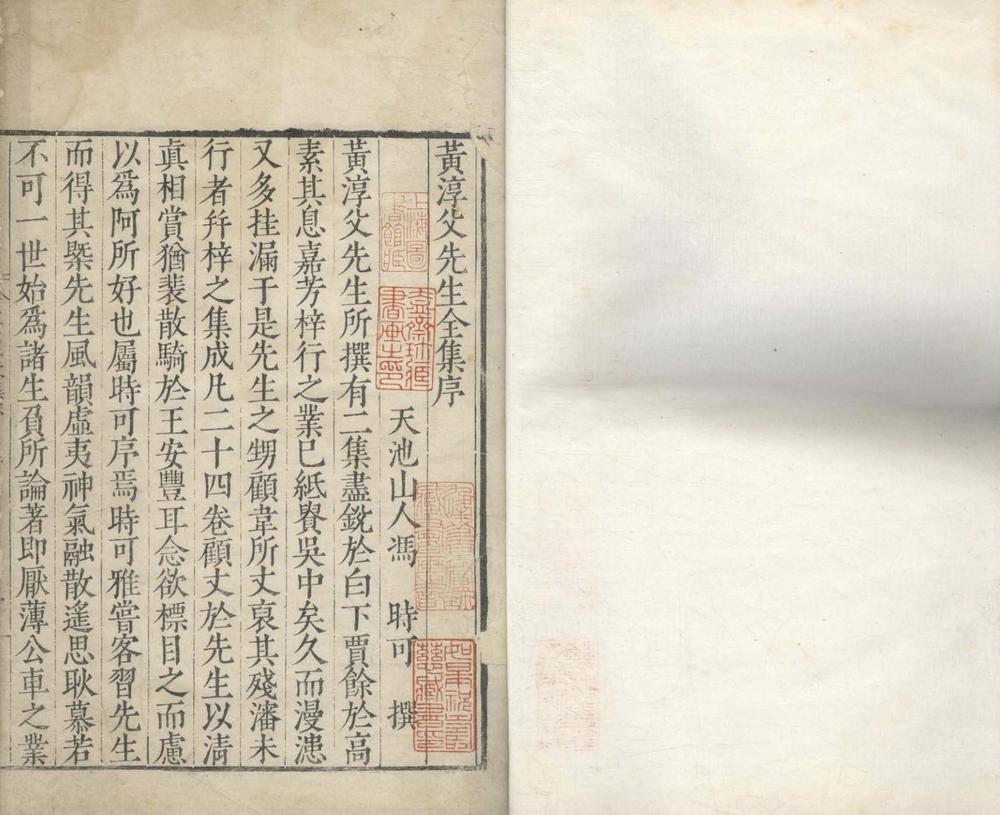 黃淳父先生全集序
天池山人馮 時可 撰
黃淳父先生所撰有二集盡鋭於白下賈餘於高
素其息嘉芳梓行之業已紙貴吳中矣久而漫漶
又多挂漏于是先生之甥顧韋所丈裒其殘瀋未
行者并梓之集成凡二十四卷顧丈於先生以清
真相賞猶裴散騎於王安豐耳念欲標目之而慮
以爲阿所好也屬時可序焉時可雅嘗客習先生
而得其槩先生風韻虛夷神氣融散遙思耿慕若
不可一世始爲諸生負所論著即厭薄公車之業
上海圖書館藏